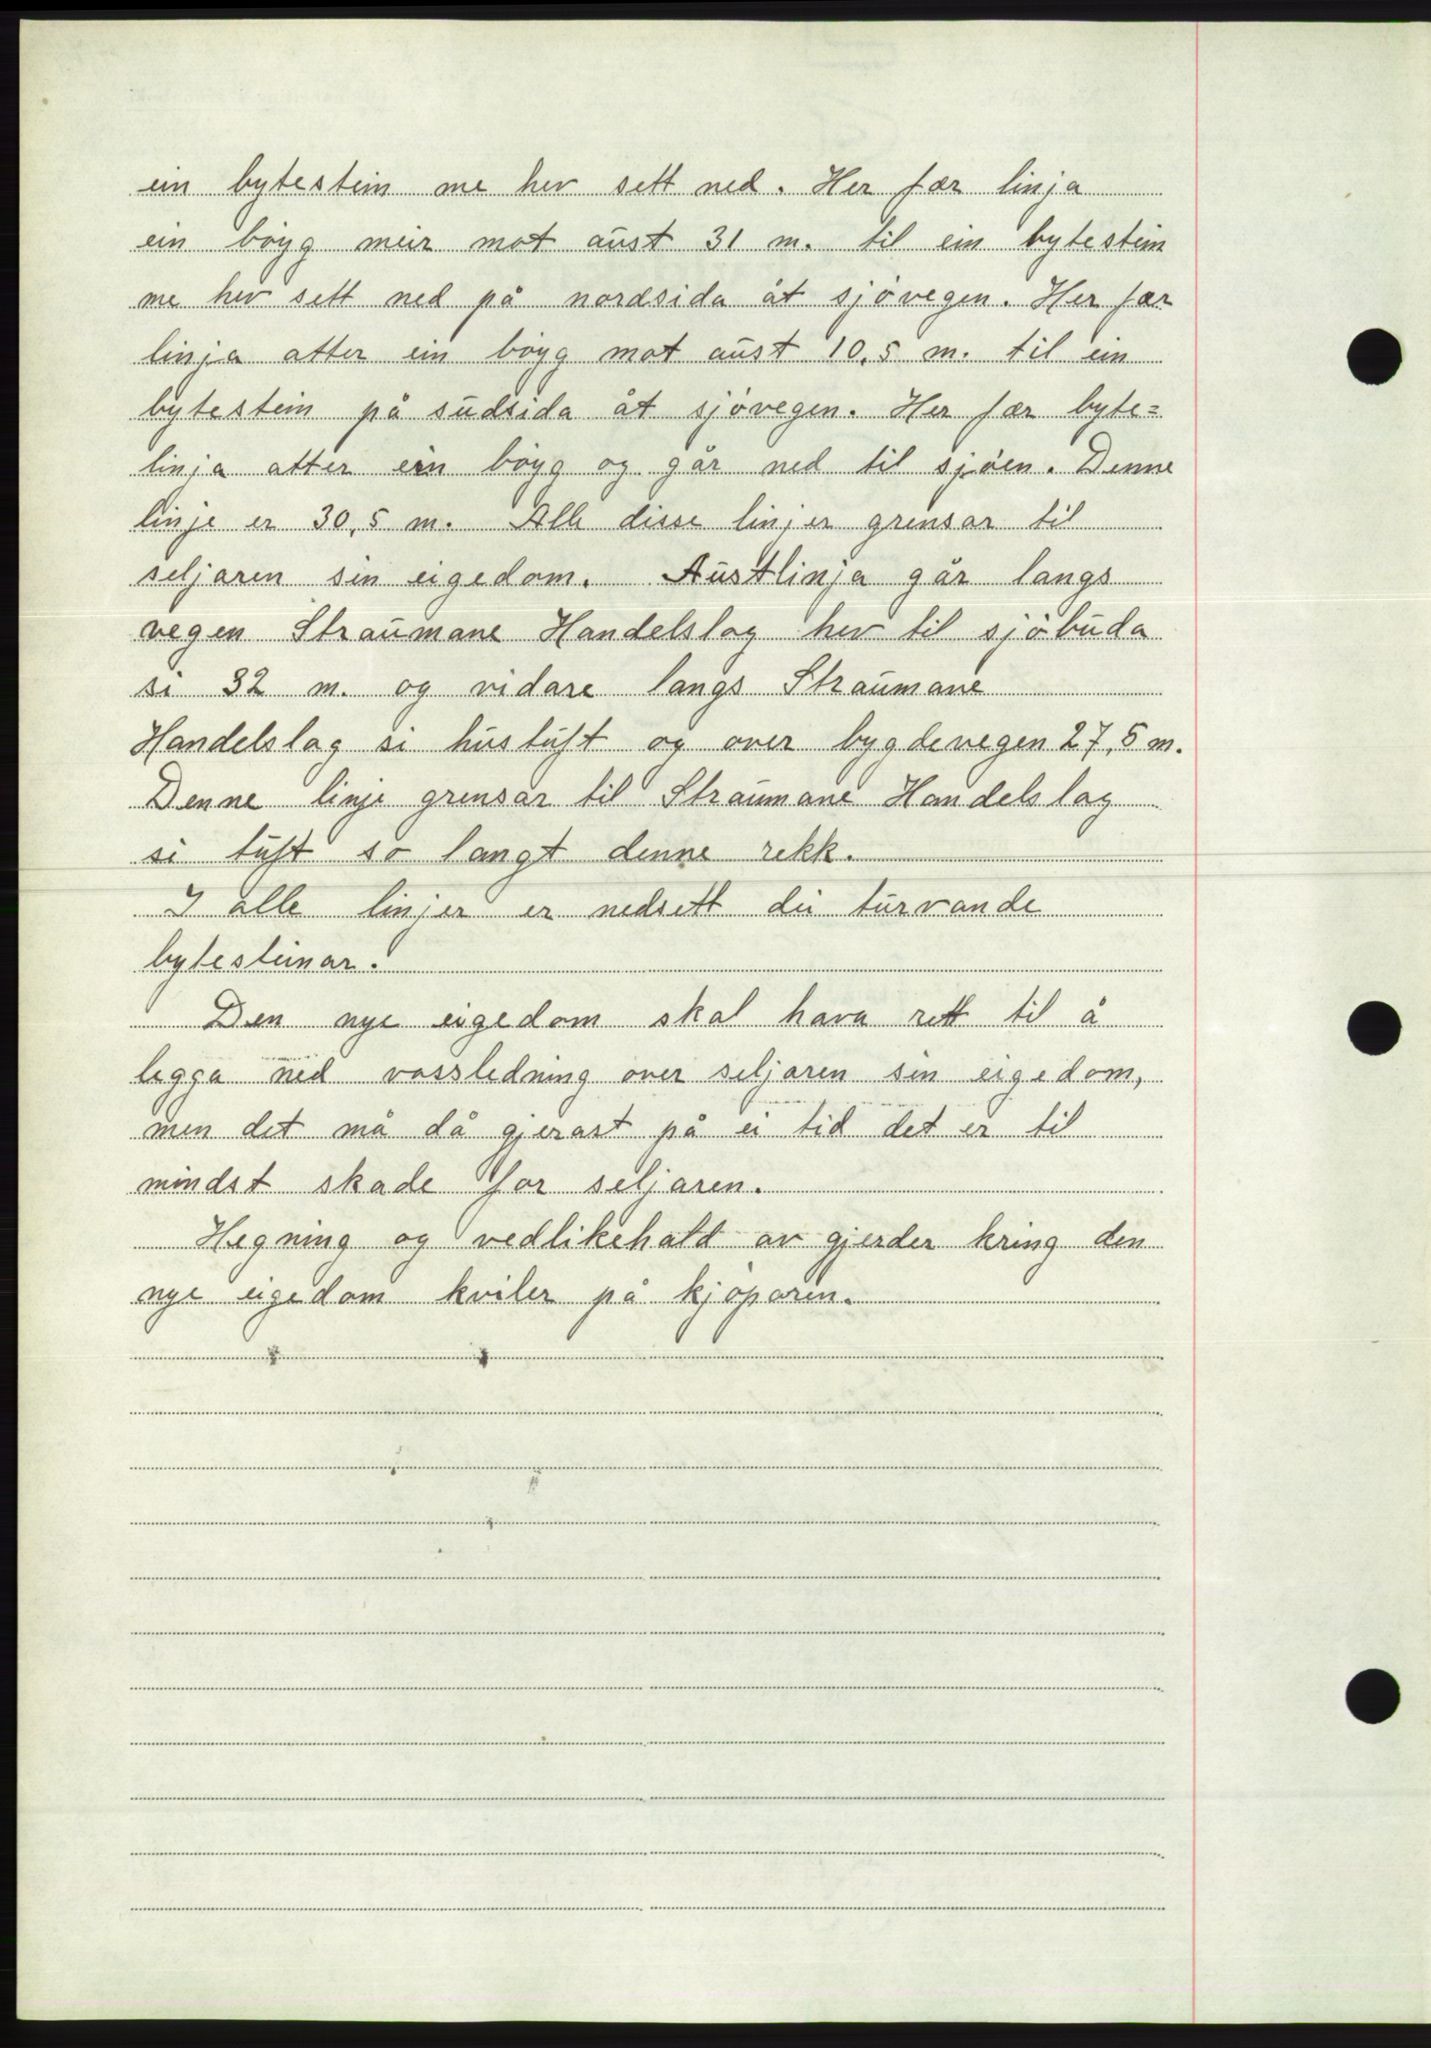 ein bytestein me hev sett ned. Her fær linja
ein bøyg meir mot aust 31 m. til ein bytestein
me hev sett ned på nordsida åt sjøvegen. Her fær
linja atter ein bøyg mot aust 10,5 m. til ein
bytestein på sudsida åt sjøvegen. Her fær byte=
linja atter ein bøyg og går ned til sjøen. Denne
linje er 30,5 m. Alle disse linjer grensar til
seljaren sin eigedom. Austlinja går langs
vegen Straumane Handelslag hev til sjøbuda
si 32 m. og vidare langs Straumane
Handelslag si hustuft og over bygdevegen 27,5 m.
Denne linje grensar til Straumane Handelslag
si tuft so langt denne rekk.
I alle linjer er nedsett dei turvande
bytesteinar.
Den nye eigedom skal hava rett til å
legga ned vassledning over seljaren sin eigedom,
men det må då gjerast på ei tid det er til
mindst skade for seljaren.
Hegning og vedlikehald av gjerder kring den
nye eigedom kviler på kjøparen.